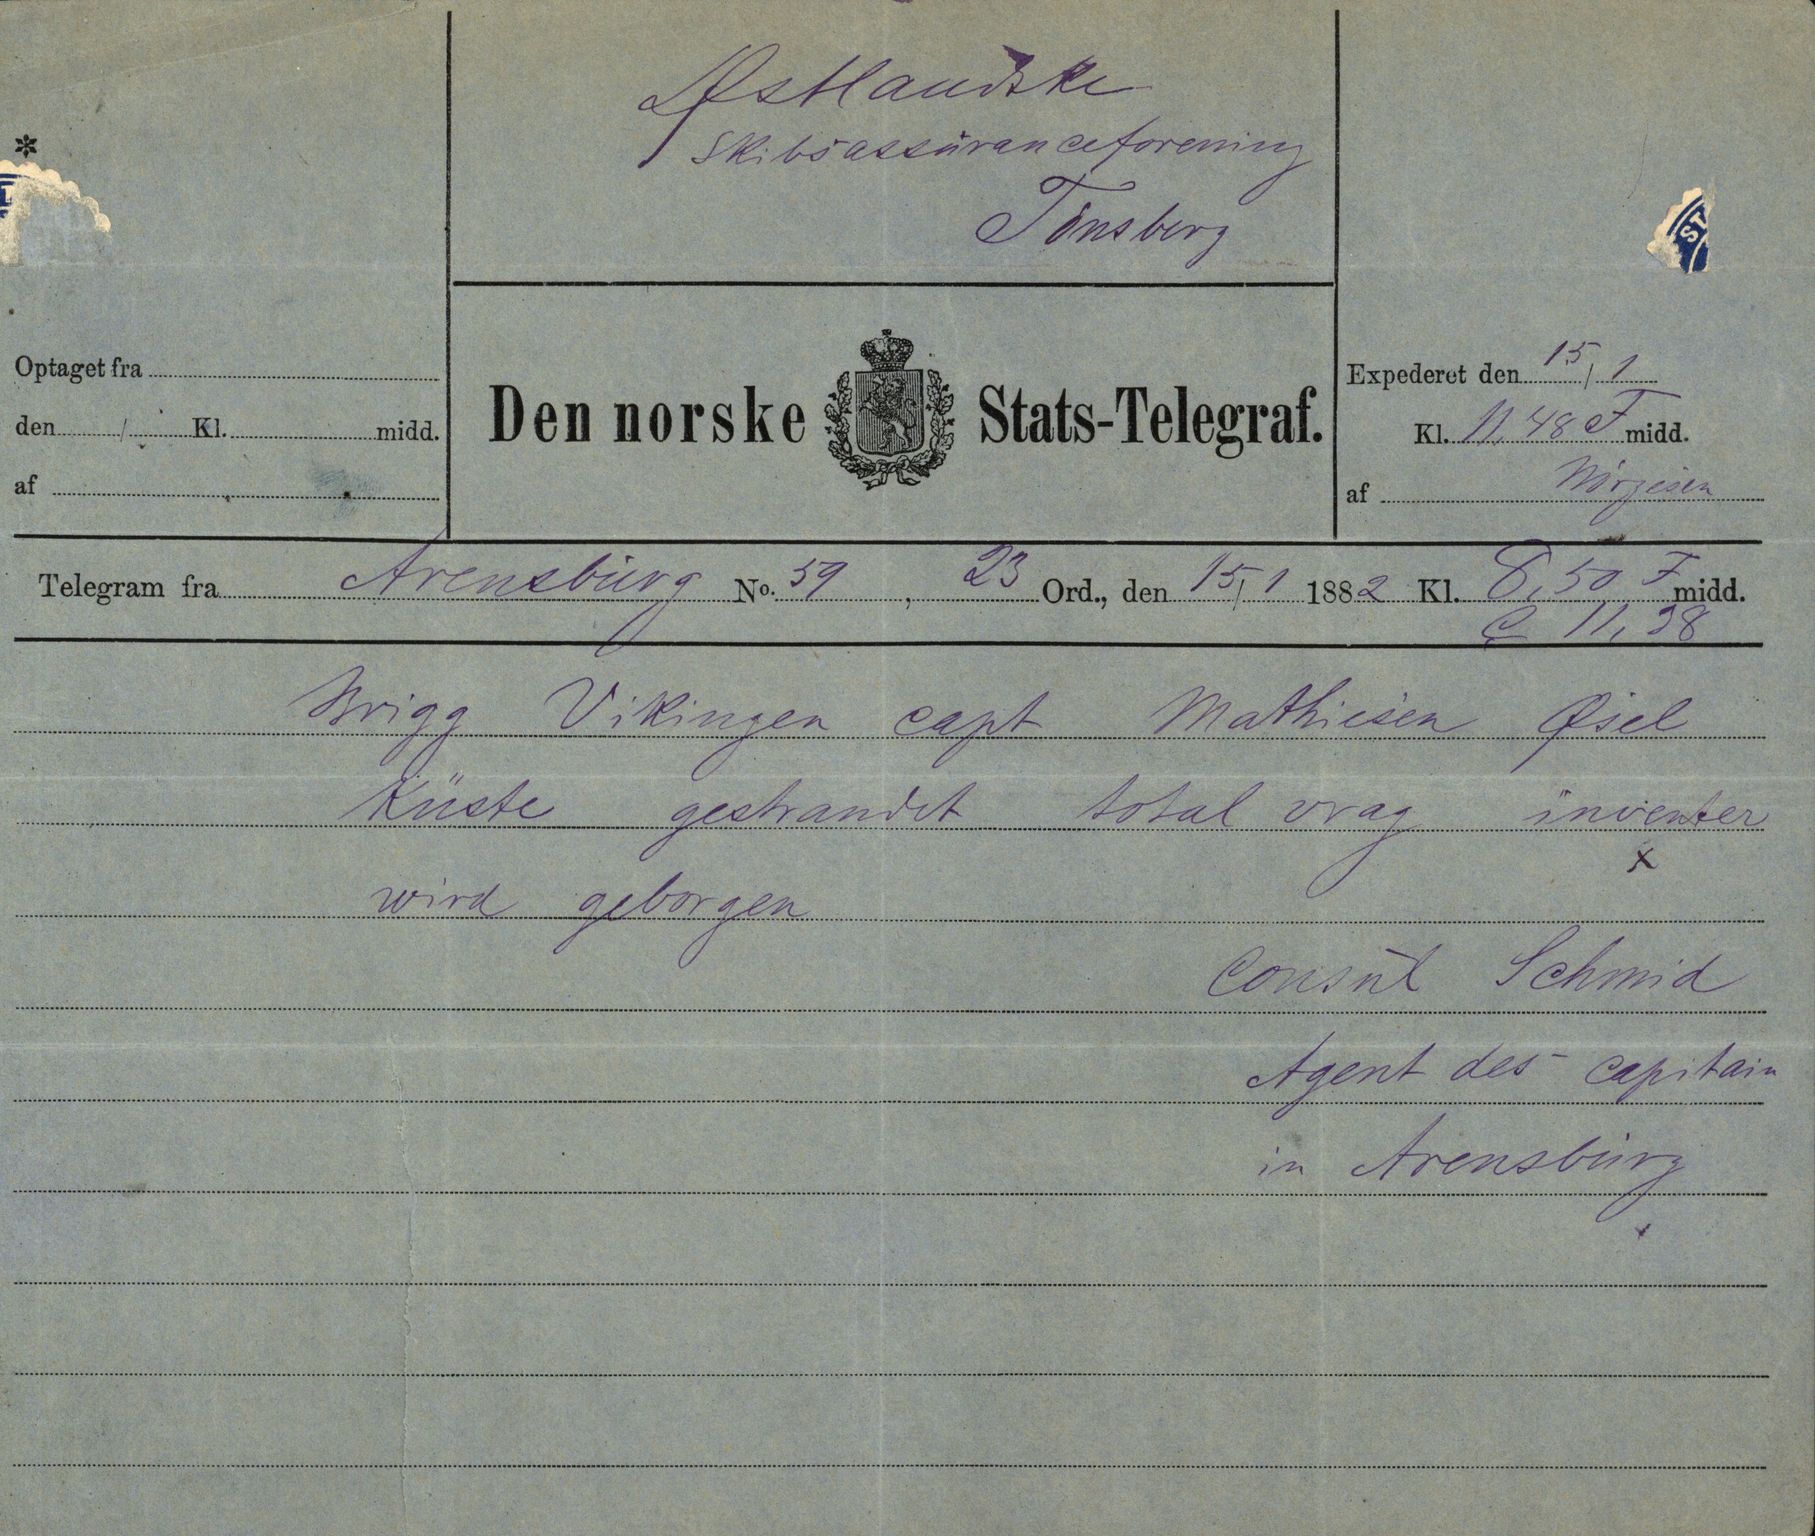 Østlandske
Skibsassuranceforening
Tönsberg
*
Optaget fra
den / Kl. midd.
af
Den norske Stats-Telegraf.
Expederet den 15/1
Kl. 11,48 F midd.
af
Telegram fra Arensburg No. 59, 23 Ord., den 15/1 1882 Kl. 8,50 F midd.
C 11,38
Brigg Vikingen capt Mathiesen Øsel
Küste gestrandet total vrag inventer
x
wird geborgen
Consul Schmid
Agent des capitain
in Arensburg
ST